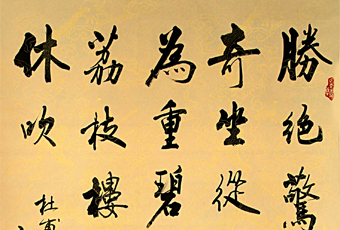 勝絶驚
奇坐從
為重碧
荔枝樓
休吹
杜甫